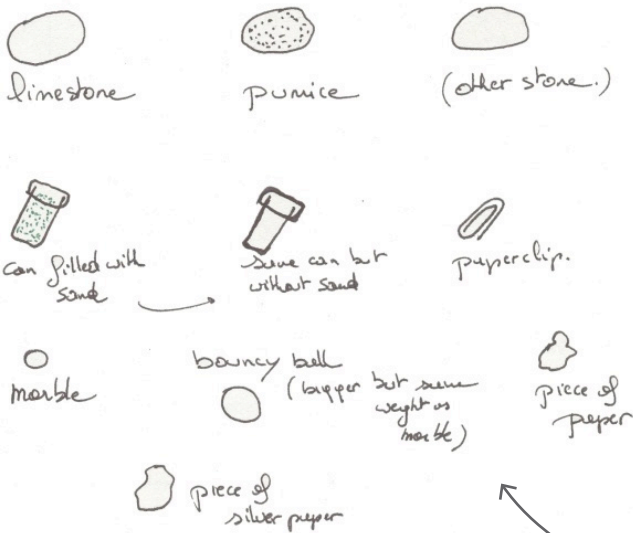 limestone
pumice
(other stone.)
can filled with
sand
same can but
without sand
paperclip.
marble
bouncy ball
(bigger but same
weight as
marble)
piece of
paper
piece of
silver paper